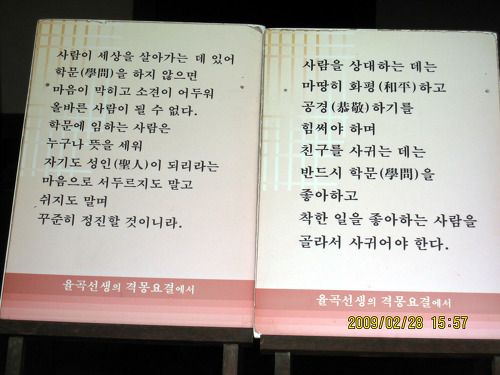 사람이 세상을 살아가는 데 있어
학문(學問)을 하지 않으면
마음이 막히고 소견이 어두워
올바른 사람이 될 수 없다.
학문에 임하는 사람은
누구나 뜻을 세워
자기도 성인(聖人)이 되리라는
마음으로 서두르지도 말고
쉬지도 말며
꾸준히 정진할 것이니라.
율곡선생의 격몽요결에서
사람을 상대하는 데는
마땅히 화평(和平)하고
공경(恭敬)하기를
힘써야 하며
친구를 사귀는 데는
반드시 학문(學問)을
좋아하고
착한 일을 좋아하는 사람을
골라서 사귀어야 한다.
율곡선생의 격몽요결에서
2009/02/28 15:57